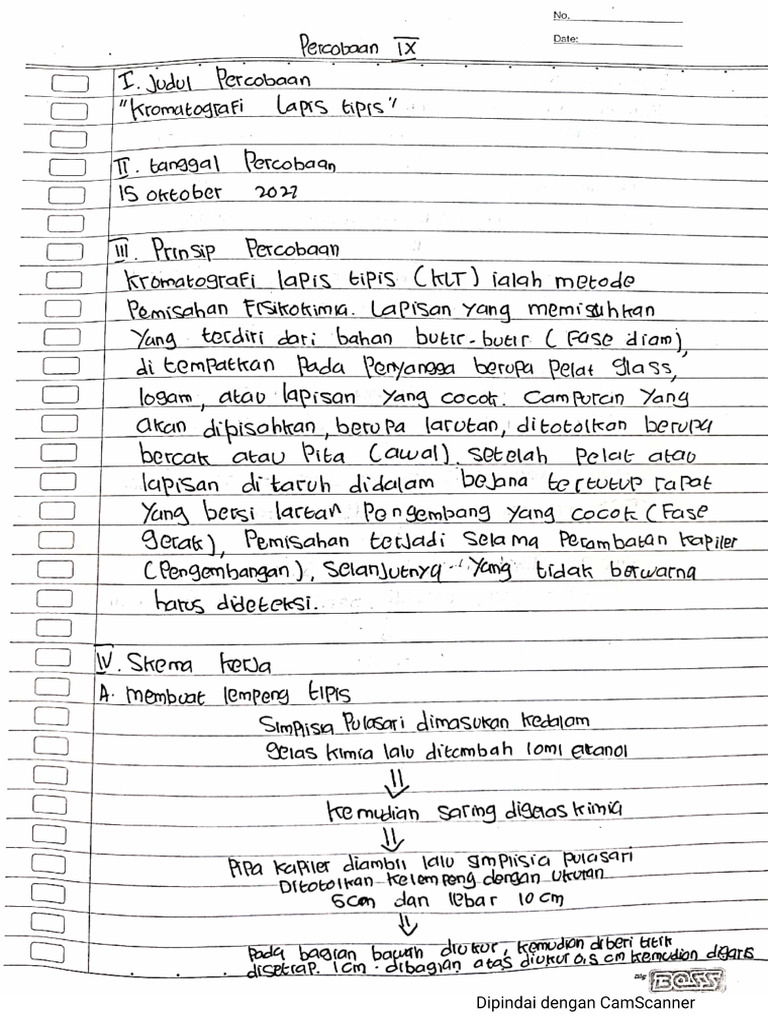 No.
Date:
Percobaan IX
I. Judul Percobaan
"Kromatografi Lapis tipis"
II. tanggal Percobaan
15 oktober 2022
III. Prinsip Percobaan
Kromatografi lapis tipis (KLT) ialah metode
Pemisahan Fisikokimia. Lapisan yang memisahkan
Yang terdiri dari bahan butir-butir (Fase diam),
di tempatkan Pada Penyangga berupa Pelat glass,
logam, atau lapisan yang cocok. Campuran Yang
akan dipisahkan, berupa larutan, ditotolkan berupa
bercak atau Pita (awal). setelah Pelat atau
lapisan di taruh didalam bejana tertutup rapat
Yang bersi lartan Pengembang yang cocok (Fase
gerak), Pemisahan terjadi selama Perambatan kapiler
(Pengembangan), selanjutnya Yang tidak berwarna
harus dideteksi.
IV. Skema kerja
A. membuat lempeng tipis
Simplisia Pulasari dimasukan kedalam
gelas kimia lalu ditambah 10ml etanol
⇓
kemudian saring digelas kimia
⇓
Pipa kapiler diambil lalu simplisia pulasari
Ditotolkan kelempeng dengan ukuran
5cm dan lebar 10 cm
⇓
Pada bagian bawah diukur, kemudian diberi titik
disetiap 1cm. dibagian atas diukur 0,5 cm kemudian digaris
BOSS
Dipindai dengan CamScanner